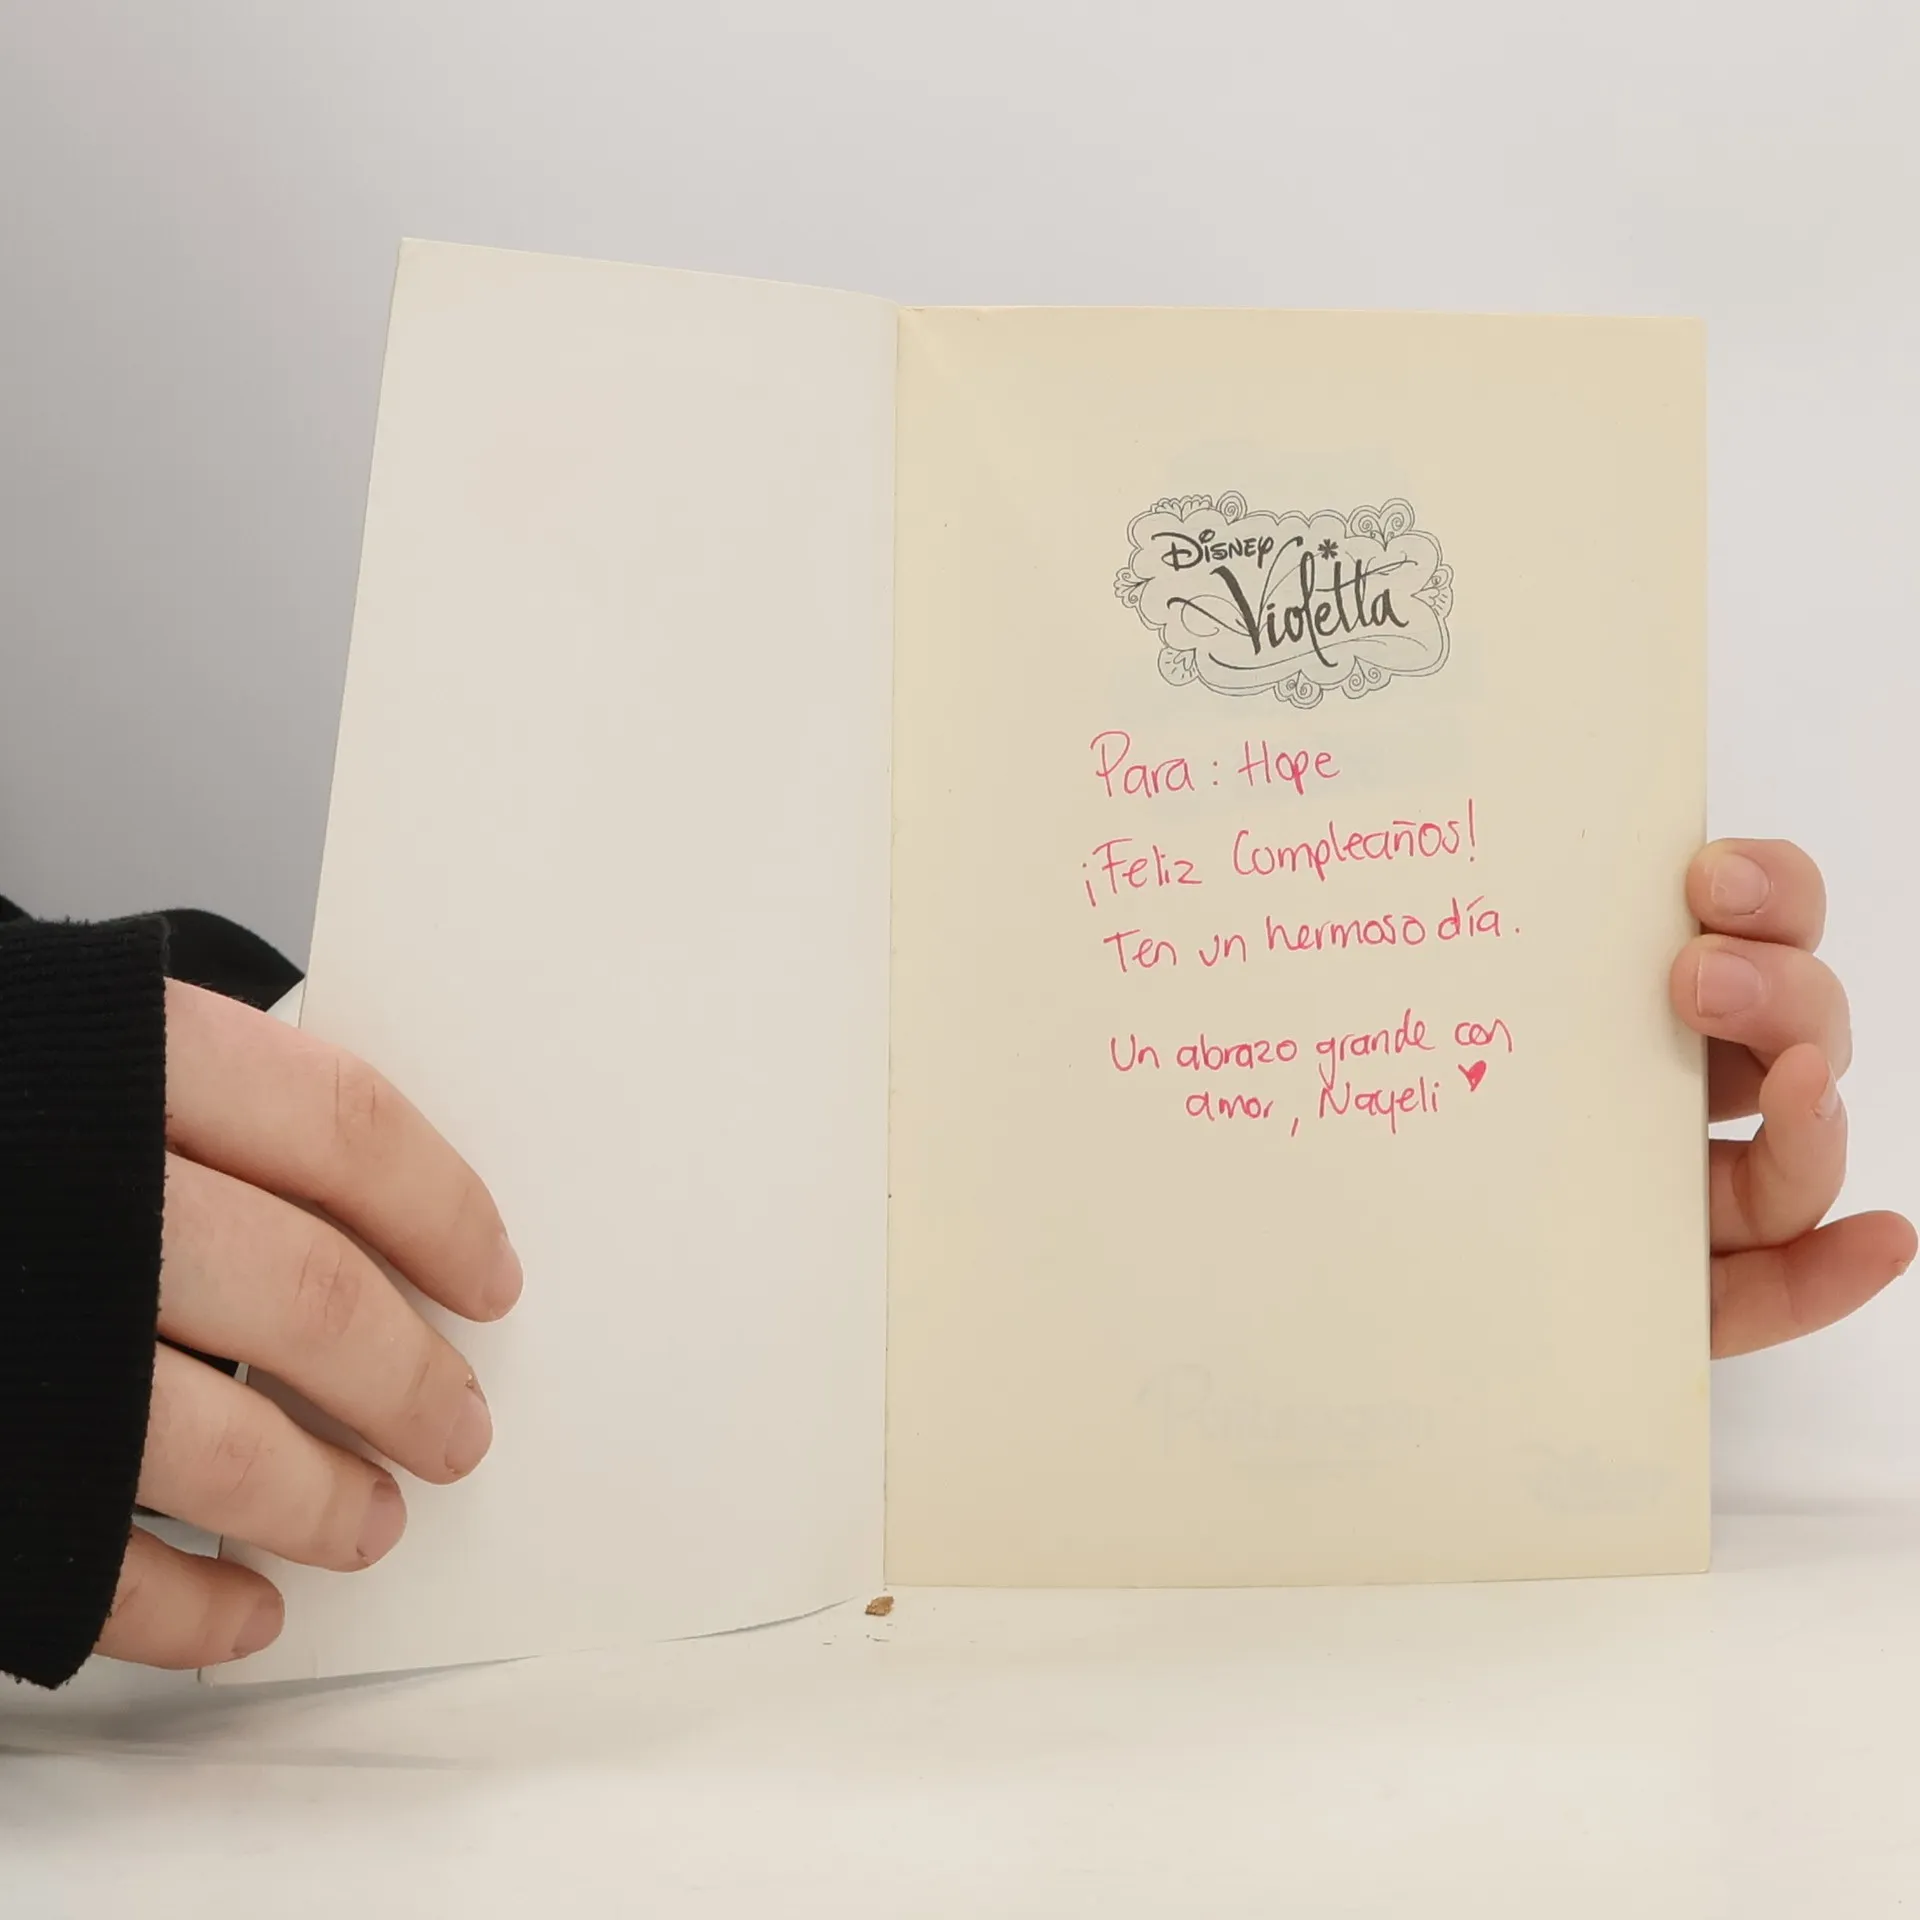 Disney
Violetta
Para: Hope
¡Feliz Cumpleaños!
Ten un hermoso día.
Un abrazo grande con
amor, Nayeli